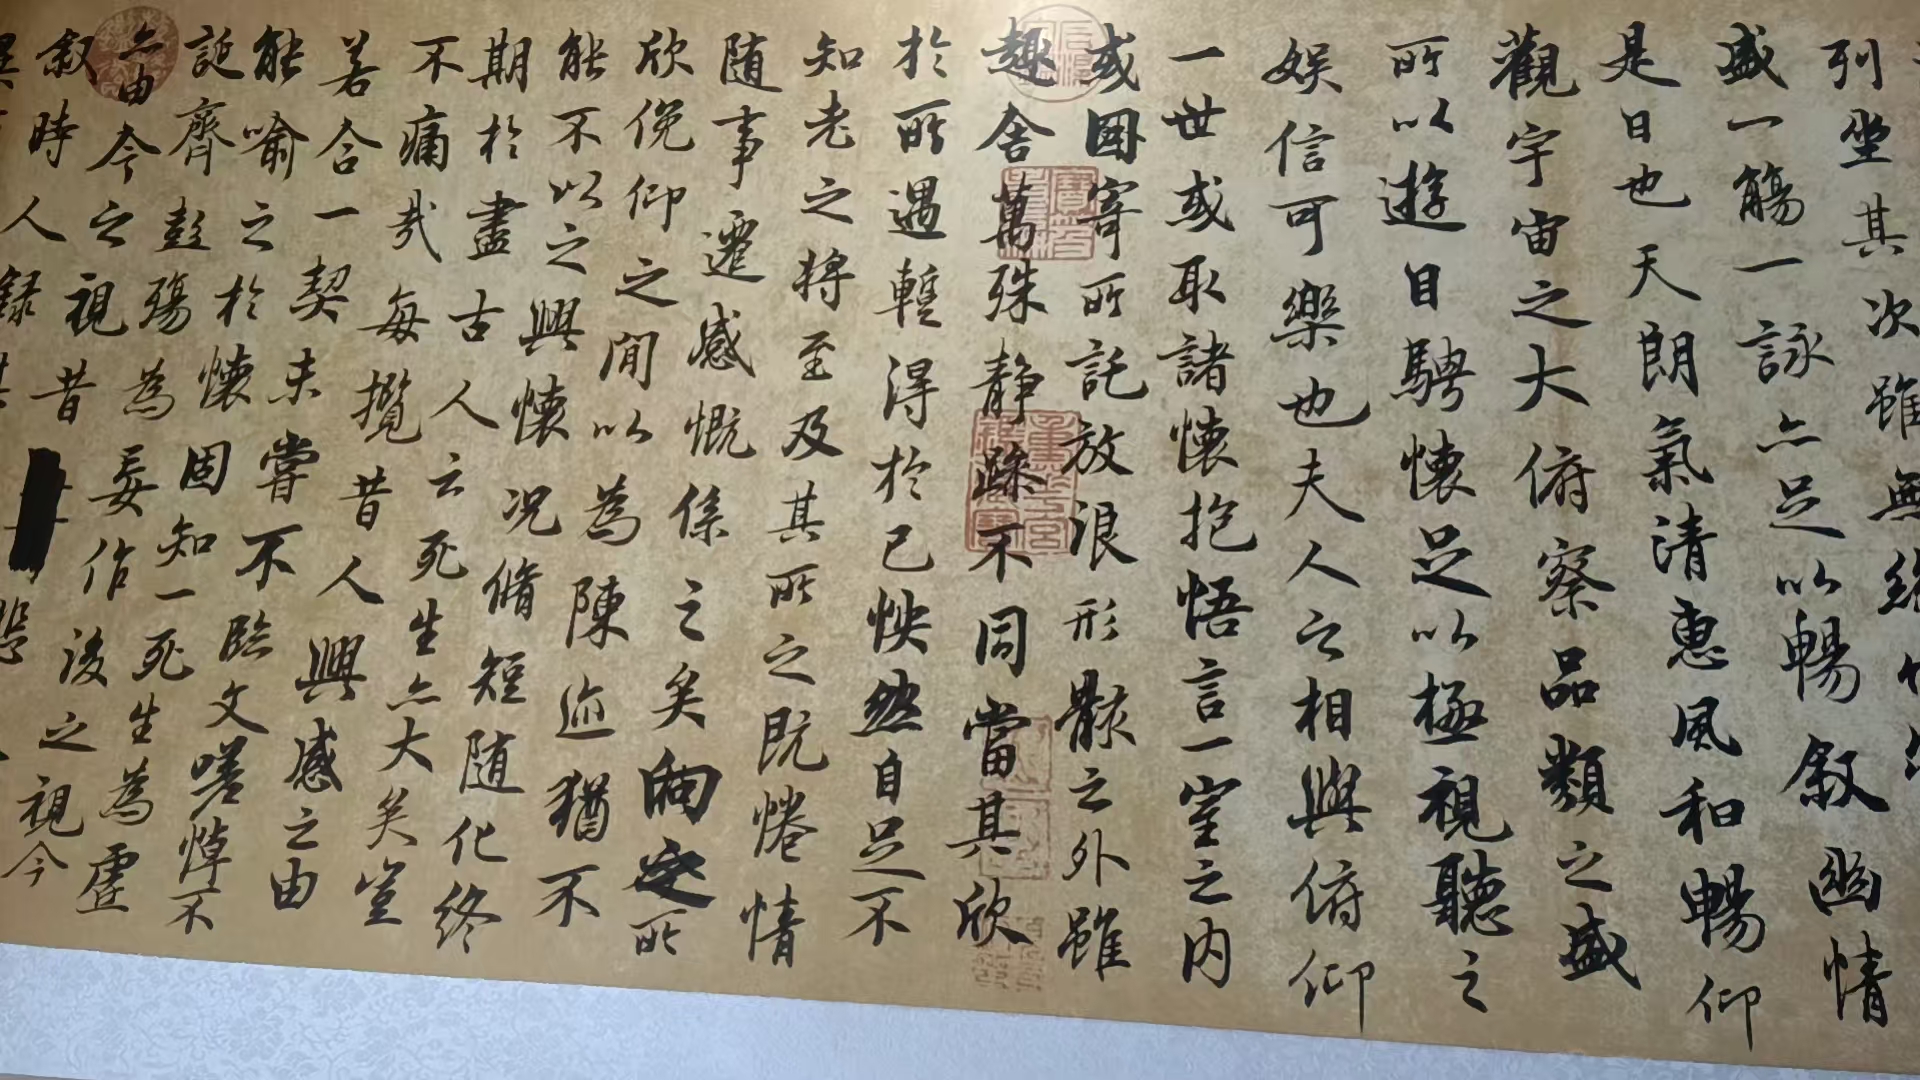 列坐其次雖無
盛一觴一詠亦足以暢敘幽情
是日也天朗氣清惠風和暢仰
觀宇宙之大俯察品類之盛
所以遊目騁懷足以極視聽之
娛信可樂也夫人之相與俯仰
一世或取諸懷抱悟言一室之內
或因寄所託放浪形骸之外雖
趣舍萬殊靜躁不同當其欣
於所遇暫得於己怏然自足不
知老之將至及其所之既惓情
隨事遷感慨係之矣向之所
欣俛仰之閒以為陳迹猶不
能不以之興懷況脩短隨化終
期於盡古人云死生亦大矣豈
不痛哉每攬昔人興感之由
若合一契未嘗不臨文嗟悼不
能喻之於懷固知一死生為虛
誕齊彭殤為妄作後之視今
亦由今之視昔
敘時人錄